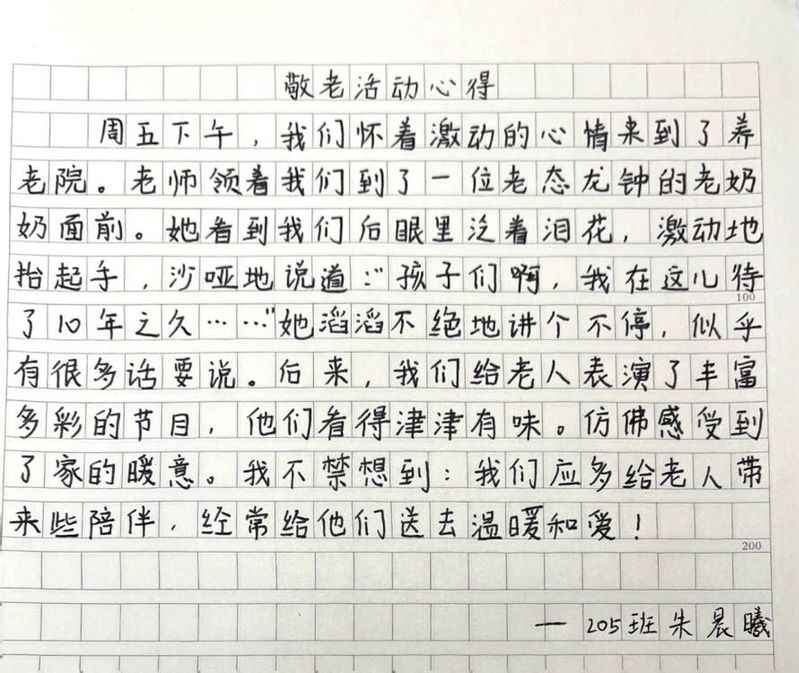 敬老活动心得
周五下午，我们怀着激动的心情来到了养
老院。老师领着我们到了一位老态龙钟的老奶
奶面前。她看到我们后眼里泛着泪花，激动地
抬起手，沙哑地说道：“孩子们啊，我在这儿待
100
了10年之久……”她滔滔不绝地讲个不停，似乎
有很多话要说。后来，我们给老人表演了丰富
多彩的节目，他们看得津津有味。仿佛感受到
了家的暖意。我不禁想到：我们应多给老人带
来些陪伴，经常给他们送去温暖和爱！
200
一205班朱晨曦